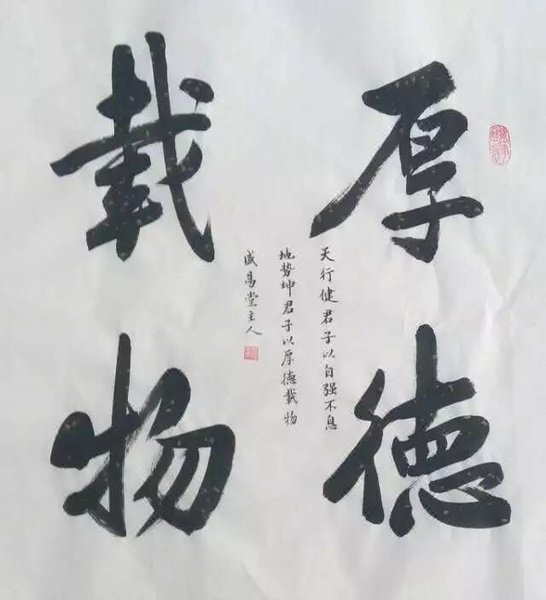 厚德
载物
天行健君子以自强不息
地势坤君子以厚德载物
盛易堂主人